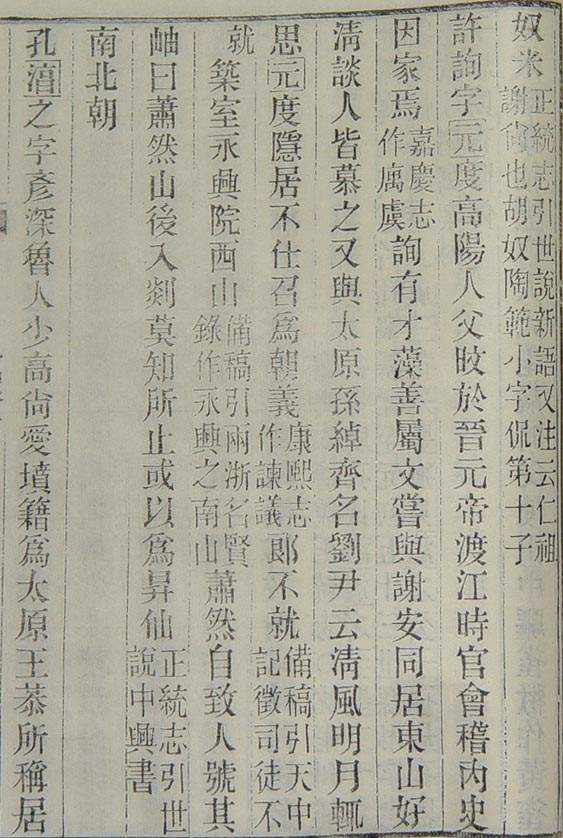 奴米正統志引世說新語又注云仁祖謝尙也胡奴陶範小字侃第十子
許詢字元度高陽人父旼於晉元帝渡江時官會稽內史
因家焉嘉慶志作寓虞詢有才藻善屬文嘗與謝安同居東山好
淸談人皆慕之又與太原孫綽齊名劉尹云淸風明月輒
思元度隱居不仕召爲朝義康熙志作諫議郎不就備稿引天中記徵司徒不
就築室永興院西山備稿引兩浙名賢錄作永興之南山蕭然自致人號其
岫曰蕭然山後入剡莫知所止或以爲昇仙正統志引世說中興書
南北朝
孔湻之字彥深魯人少高尙愛墳籍爲太原王恭所稱居